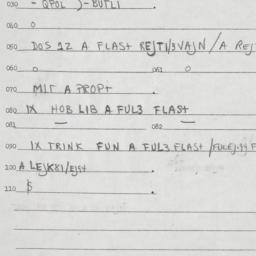 030 - QPOL )-BUTLI .
040 0
050 DOS 1Z A FLASt REJTI/3VAJN/A REJ
060 0 061 0
070 MIT A PROPT .
080 IX HOB LIB A FUL3 FLASt
081 — 082 —
090 IX TRINK FUN A FUL3 FLASt
100 A LEJKKI/EJSt .
110 $ .